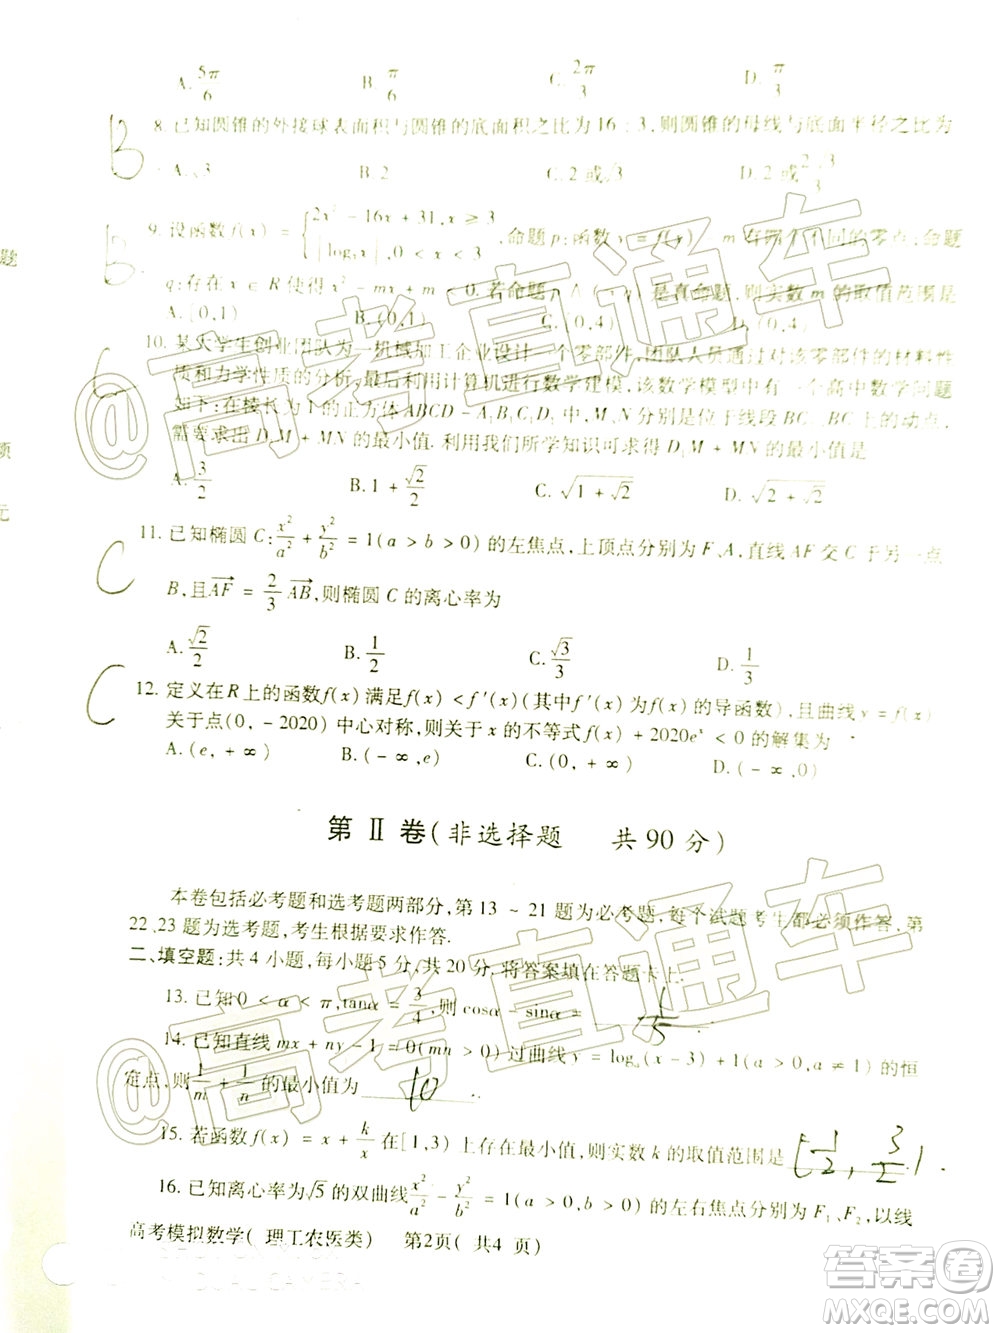 A. 5π/6 B. π/6 C. 2π/3 D. π/3
B
8. 已知圆锥的外接球表面积与圆锥的底面积之比为 16 : 3, 则圆锥的母线与底面半径之比为
A. √3 B. 2 C. 2 或 √3 D. 2 或 2√3/3
B
9. 设函数 f(x) = { 2x² − 16x + 31, x ≥ 3
|log₃x|, 0 < x < 3 , 命题 p: 函数 y = f(x) − m 有两个不同的零点; 命题
q: 存在 x ∈ R 使得 x² − mx + m < 0. 若命题 p ∧ (¬q) 是真命题, 则实数 m 的取值范围是
A. [0,1) B. (0,1) C. (0,4) D. [0,4)
C
10. 某大学生创业团队为一机械加工企业设计一个零部件, 团队人员通过对该零部件的材料性
质和力学性质的分析, 最后利用计算机进行数学建模, 该数学模型中有一个高中数学问题
如下: 在棱长为 1 的正方体 ABCD − A₁B₁C₁D₁ 中, M、N 分别是位于线段 BC₁、BC 上的动点,
需要求出 D₁M + MN 的最小值. 利用我们所学知识可求出 D₁M + MN 的最小值是
A. 3/2 B. 1 + √2/2 C. √(1 + √2) D. √(2 + √2)
C
11. 已知椭圆 C: x²/a² + y²/b² = 1(a > b > 0) 的左焦点, 上顶点分别为 F、A, 直线 AF 交 C 于另一点
B, 且 AF = 2/3 AB, 则椭圆 C 的离心率为
A. √2/2 B. 1/2 C. √3/3 D. 1/3
C
12. 定义在 R 上的函数 f(x) 满足 f(x) < f′(x) (其中 f′(x) 为 f(x) 的导函数), 且曲线 y = f(x)
关于点(0, −2020) 中心对称, 则关于 x 的不等式 f(x) + 2020eˣ < 0 的解集为
A. (e, +∞) B. (−∞, e) C. (0, +∞) D. (−∞, 0)
第 Ⅱ 卷(非选择题 共 90 分)
本卷包括必考题和选考题两部分, 第 13 ~ 21 题为必考题, 每个试题考生都必须作答, 第
22、23 题为选考题, 考生根据要求作答.
二、填空题: 共 4 小题, 每小题 5 分, 共 20 分. 将答案填在答题卡上.
13. 已知 0 < α < π, tanα = 3/4, 则 cosα − sinα = 1/5
14. 已知直线 mx + ny − 1 = 0(mn > 0) 过曲线 y = logₐ(x − 3) + 1(a > 0, a ≠ 1) 的恒
定点, 则 1/m + 1/n 的最小值为
15. 若函数 f(x) = x + k/x 在 [1,3) 上存在最小值, 则实数 k 的取值范围是
16. 已知离心率为 √5 的双曲线 x²/a² − y²/b² = 1(a > 0, b > 0) 的左右焦点分别为 F₁、F₂, 以线
高考模拟数学( 理工农医类) 第2页( 共4 页)
题
项
元
@高考直通车
@高考直通车
DUAL CAMERA
答案圈
MXQE.COM